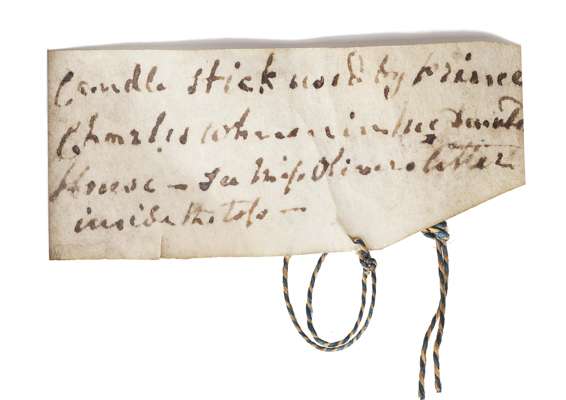 Candle stick used by Prince
Charles when in his
House — see Miss Olivers letter
inside the top —